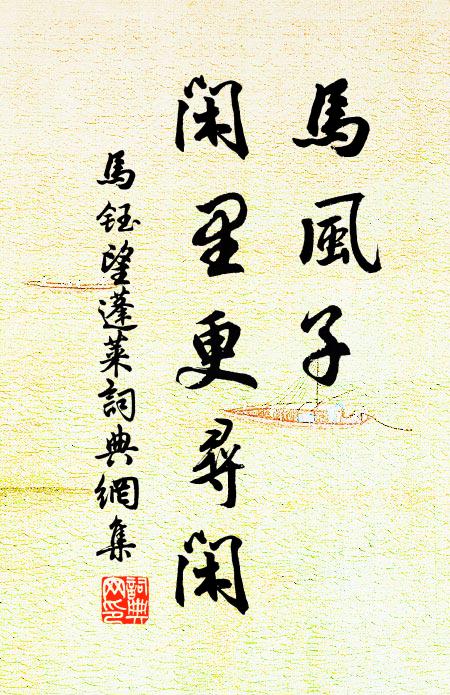 馬風子
閑里更尋閑
馬鈺望蓬萊詞典網集
詞典
网印